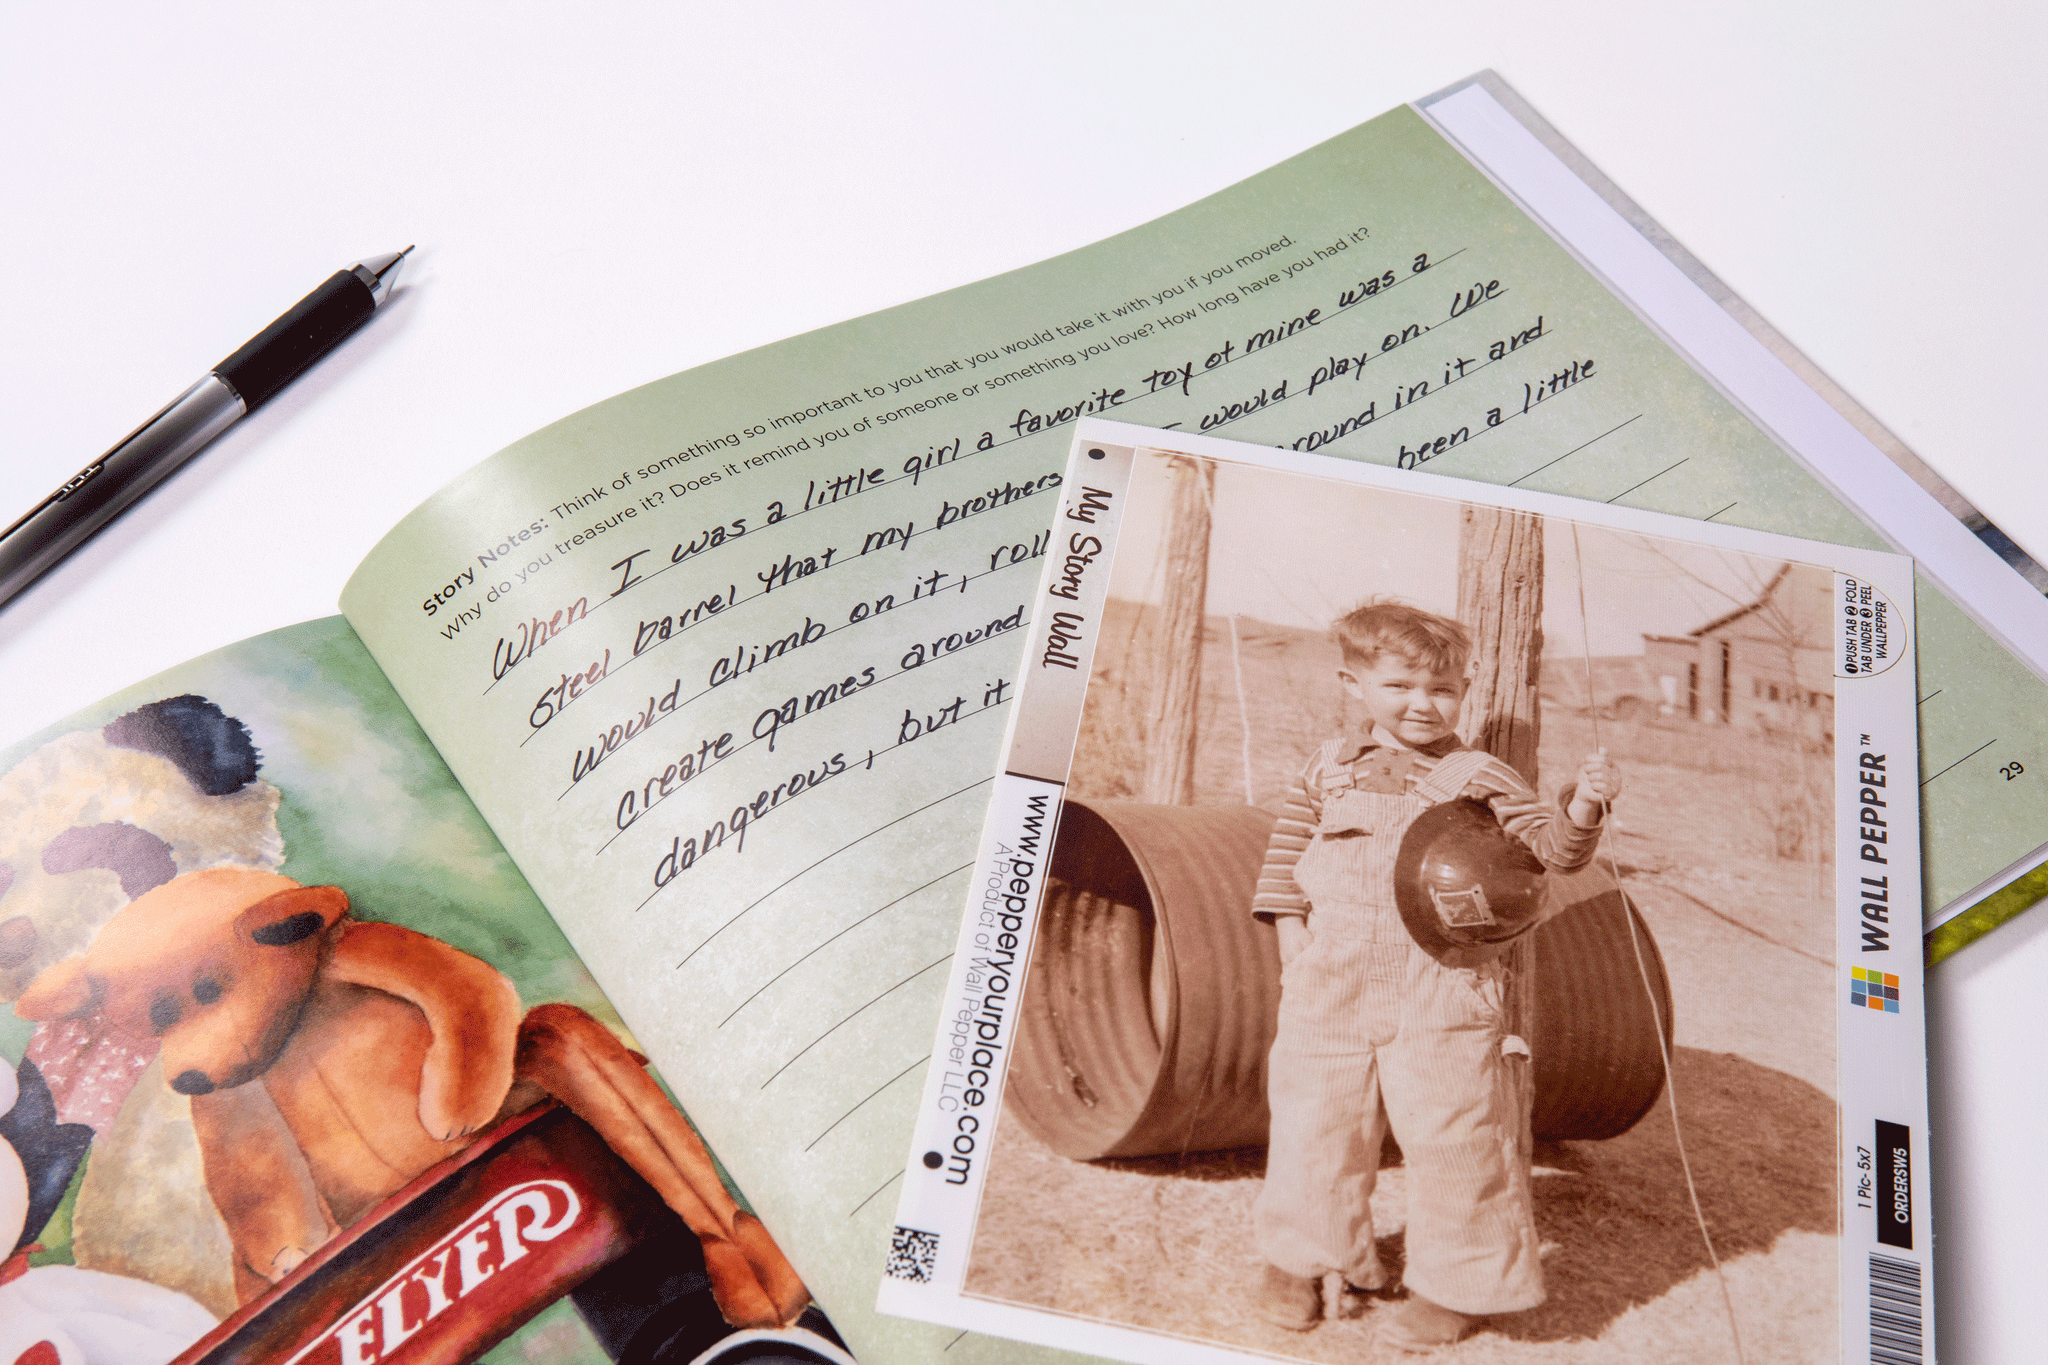 Story Notes: Think of something so important to you that you would take it with you if you moved.
Why do you treasure it? Does it remind you of someone or something you love? How long have you had it?
When I was a little girl a favorite toy of mine was a
steel barrel that my brothers I would play on. We
would climb on it, roll around in it and
create games around been a little
dangerous, but it
29
My Story Wall
www.pepperyourplace.com
A Product of Wall Pepper LLC
❶ PUSH TAB ❷ FOLD
TAB UNDER ❸ PEEL
WALLPEPPER
WALL PEPPER™
1 Pic- 5x7
ORDERSW5
FLYER